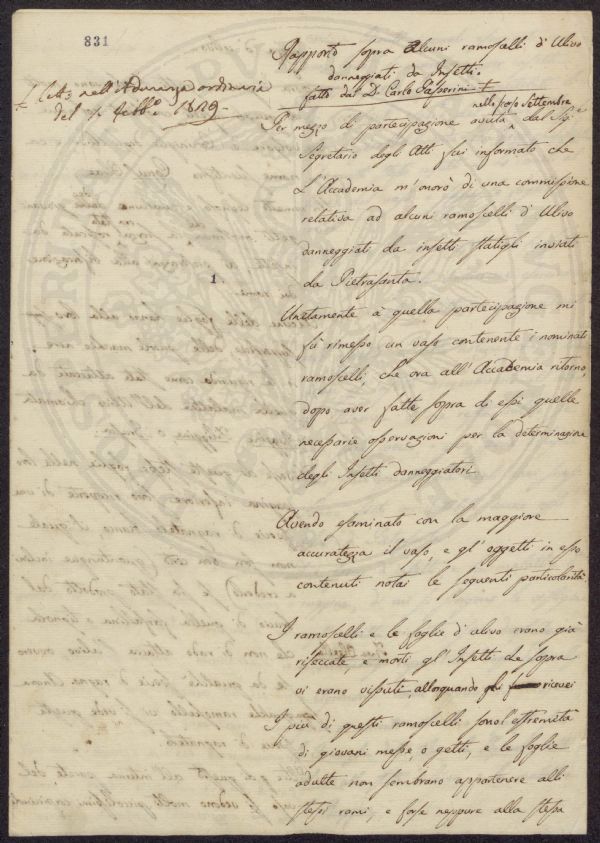 831
Rapporto sopra alcuni ramoscelli d'Ulivo
danneggiati da Insetti.
fatto dal D. Carlo Passerini
Letto nell'Adunanza ordinaria
del 1 Febb.o 1829.
nello scorso Settembre
Per mezzo di partecipazione avuta dal Sig.e
Segretario degli Atti fui informato che
L'Accademia m'onorò di una commissione
relativa ad alcuni ramoscelli d'Ulivo
danneggiati da insetti statigli inviati
da Pietrasanta.
1
Unitamente à quella partecipazione mi
fù rimesso un vaso contenente i nominati
ramoscelli, che ora all'Accademia ritorno,
dopo aver fatte sopra di essi quelle
necessarie osservazioni per la determinazione
degli Insetti danneggiatori.
Avendo esaminato con la maggiore
accuratezza il vaso, e gl'oggetti in esso
contenuti notai le seguenti particolarità
I ramoscelli e le foglie d'ulivo erano già
riseccate, e morti gl'Insetti che sopra
vi erano vissuti, allorquando gli ricevei
I più di questi ramoscelli sono l'estremità
di giovani messe, o getti, e le foglie
adulte non sembrano appartenere alli
stessi rami, e forse neppure alla stessa